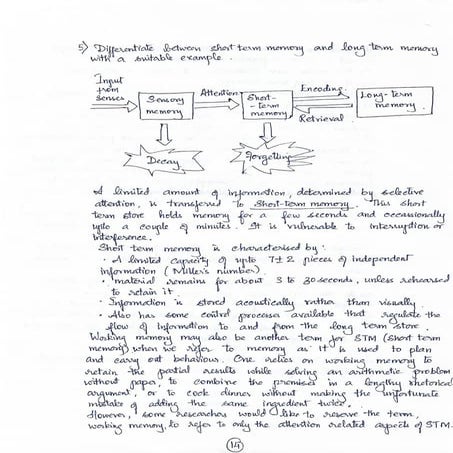 5) Differentiate between short term memory and long term memory
with a suitable example.
Input
from
senses
Sensory
memory
Attention
Short-
-term
memory
Encoding
Retrieval
Long-term
memory.
Decay
Forgetting
A limited amount of information, determined by selective
attention, is transferred to Short-term memory. This short
term store holds memory for a few seconds and occasionally
upto a couple of minutes. It is vulnerable to interruption or
interference.
Short term memory is characterised by:
• A limited capacity of upto 7±2 pieces of independent
information (Miller's number).
• material remains for about 3 to 20 seconds, unless rehearsed
to retain it.
• Information is stored acoustically rather than visually.
• Also has some control processes available that regulate the
flow of information to and from the long term store.
Working memory may also be another term for STM (short term
memory) when we refer to memory as it is used to plan
and carry out behaviour. One relies on working memory to
retain the partial results while solving an arithmetic problem
without paper, to combine the premises in a lengthy rhetorical
argument, or to cook dinner without making the unfortunate
mistake of adding the same ingredient twice.
However, some researchers would like to reserve the term,
working memory to refer to only the attention related aspects of STM.
14